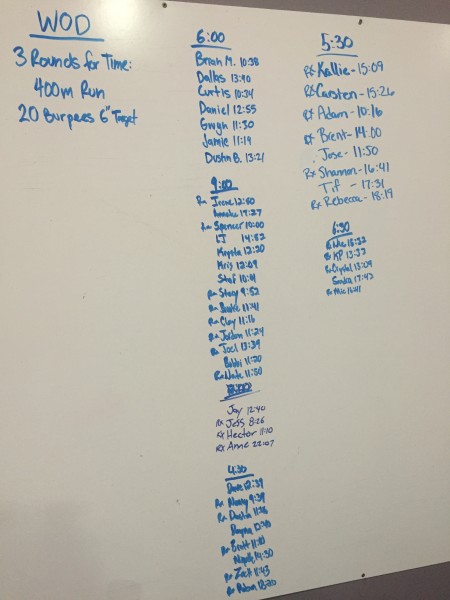 WOD
3 Rounds for Time:
400m Run
20 Burpees 6" Target
6:00
Brian M. 10:38
Dallas 13:40
Curtis 10:34
Daniel 12:55
Gwyn 11:30
Jamie 11:19
Dustin B. 13:21
9:00
Rx Irene 12:50
17:27
Rx Spencer 10:00
LJ 14:52
Kayola 12:20
Kris 12:09
Shaf
Rx Stacy 9:52
Rx 11:41
Rx Clay 11:16
Rx Jordan 11:24
Rx Joel 13:39
Bobbi 11:20
Rx Nate 11:50
Joy 12:40
Rx Jess 8:26
Rx Hector 11:10
Rx Anne 22:07
4:30
Dave 12:39
Rx Nancy 9:39
Rx Dustin
Rx Brett
14:30
Rx Zach 11:43
Rx 18:20
5:30
Rx Kallie - 15:09
Rx Carsten - 15:26
Rx Adam - 10:16
Rx Brent - 14:00
Jose - 11:50
Rx Shannon - 16:41
Tif - 17:31
Rx Rebecca - 18:19
6:30
Rx 15:32
Rx KP 13:32
Rx Crystal 13:09
Sandra 17:42
Rx 16:41